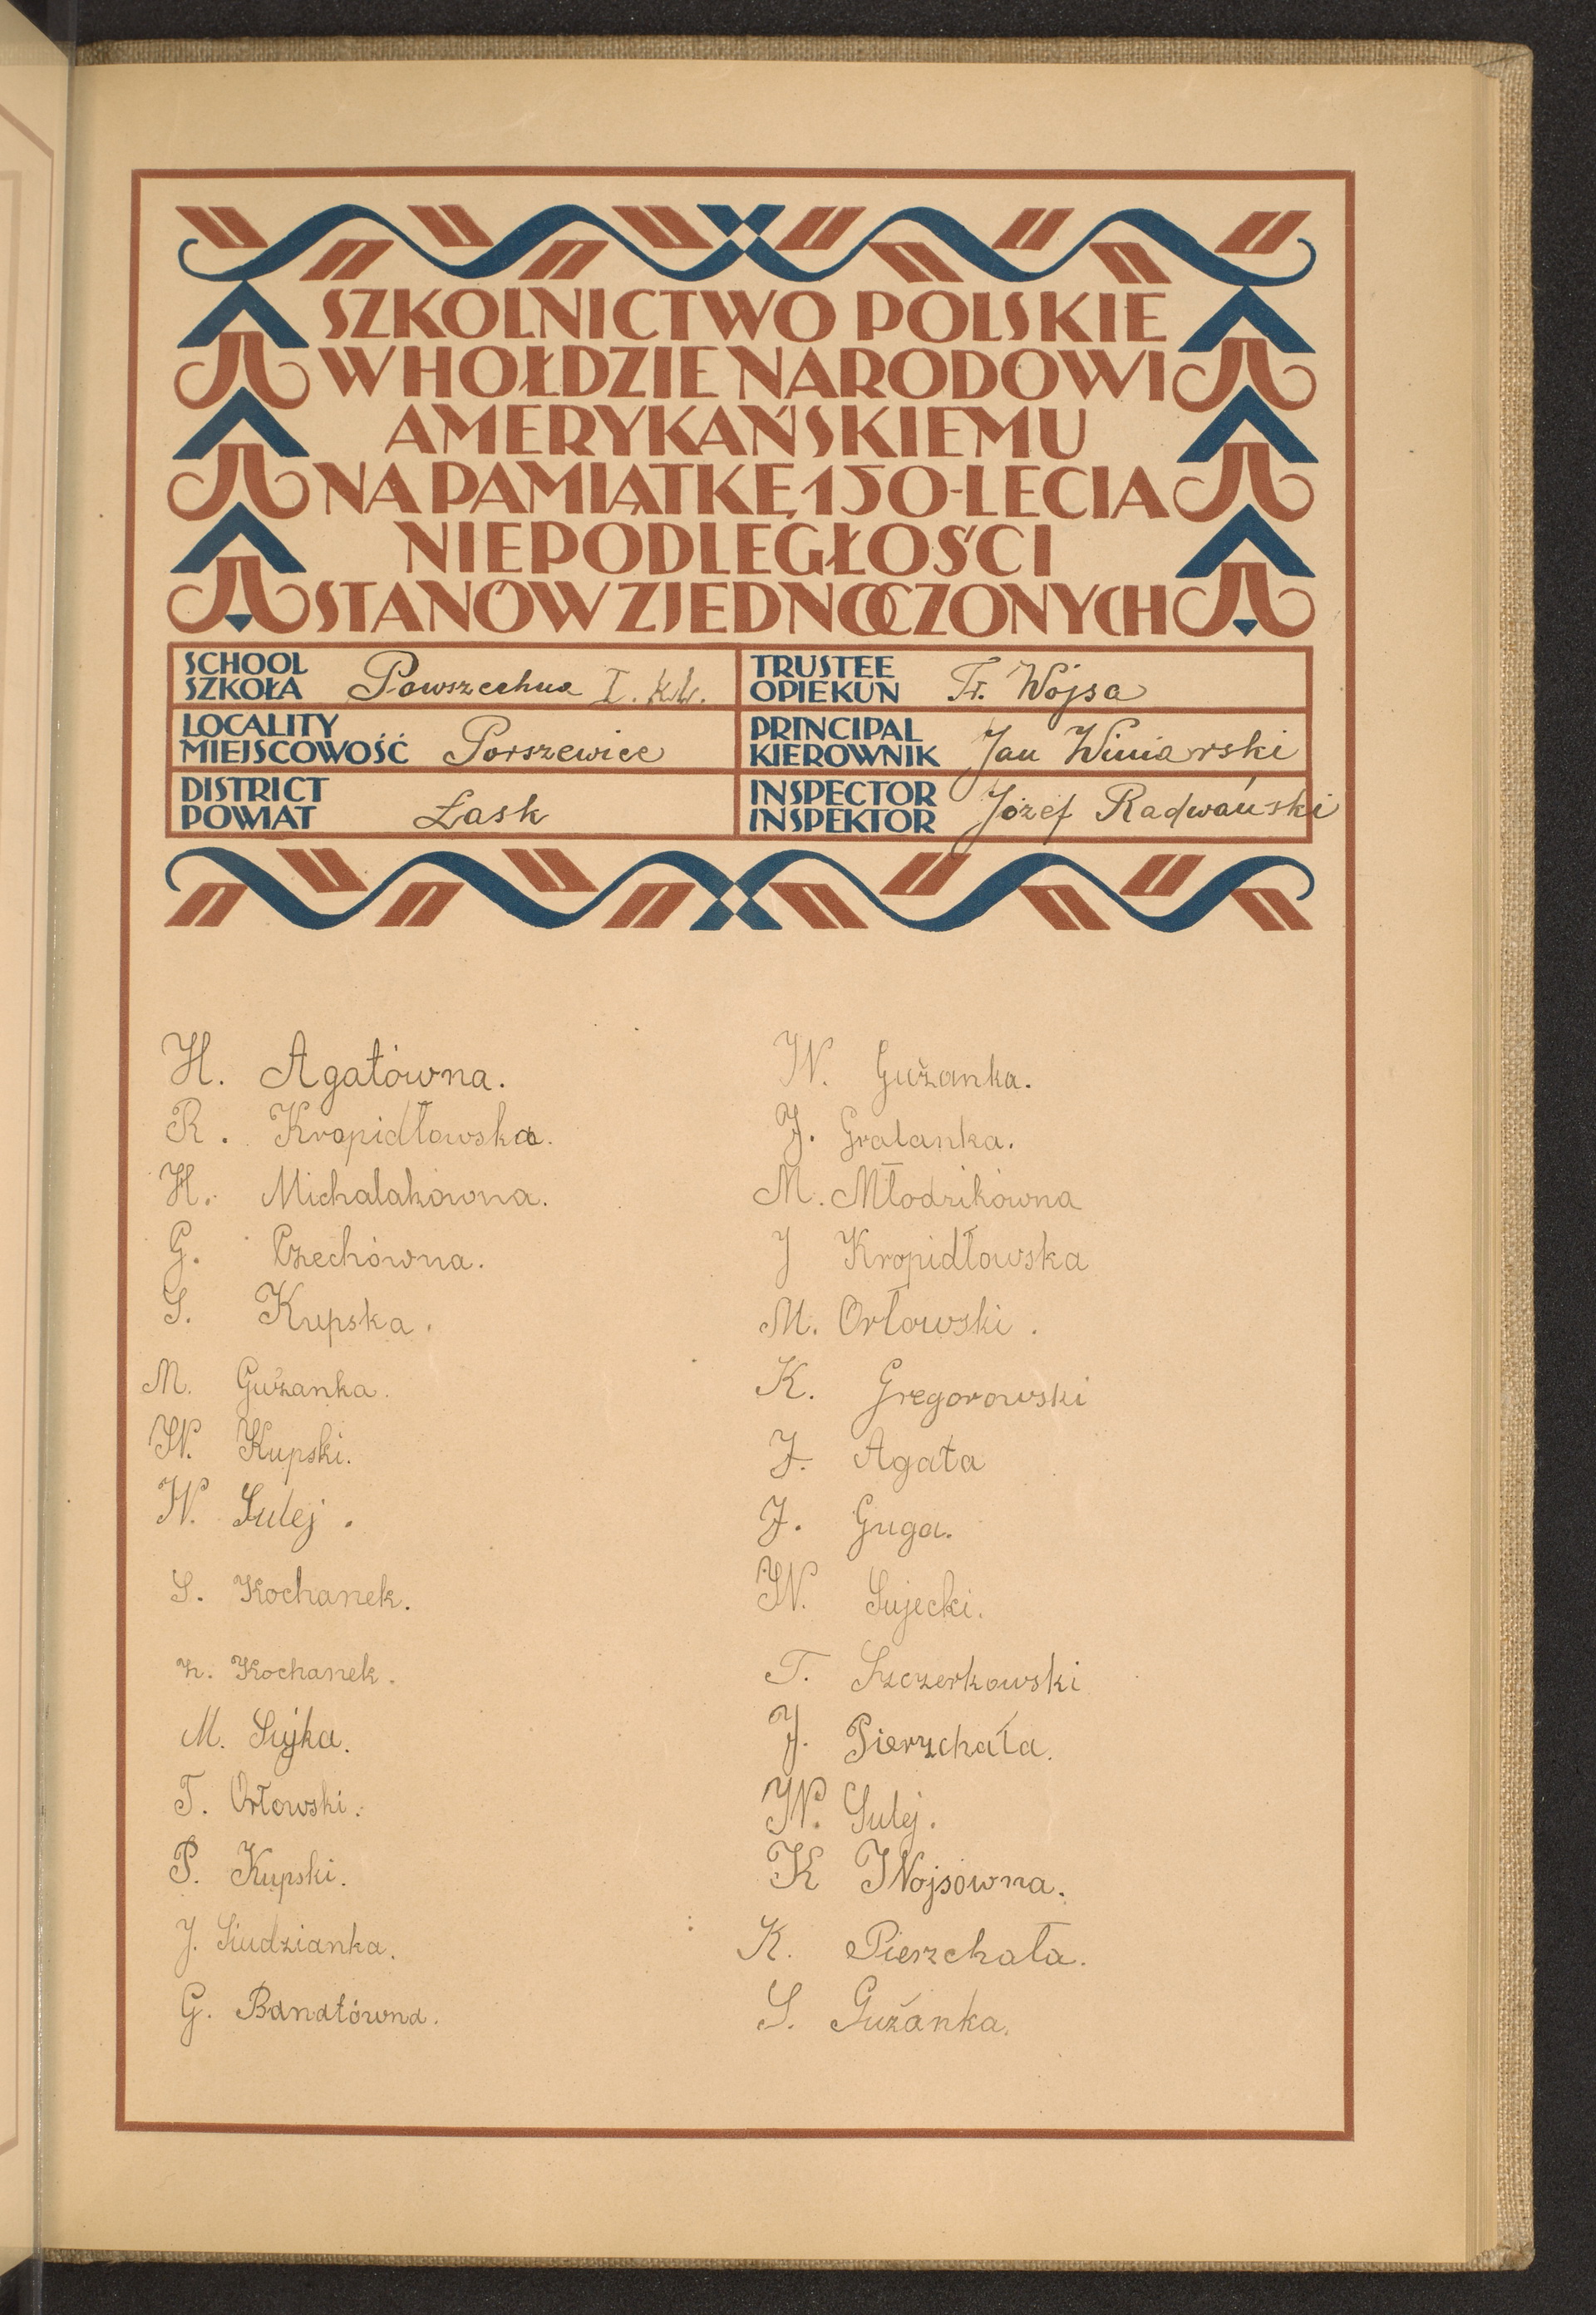 SZKOLNICTWO POLSKIE
W HOŁDZIE NARODOWI
AMERYKAŃSKIEMU
NA PAMIĄTKĘ 150-LECIA
NIEPODLEGŁOŚCI
STANÓW ZJEDNOCZONYCH
SCHOOL
SZKOŁA Powszechna I. kl.
TRUSTEE
OPIEKUN Fr. Wójsa
LOCALITY
MIEJSCOWOŚĆ Porszewice
PRINCIPAL
KIEROWNIK Jan Winiarski
DISTRICT
POWIAT Łask
INSPECTOR
INSPEKTOR Józef Radwański
H. Agatówna.
R. Kropidłowska.
H. Michalakówna.
G. Czechówna.
S. Kupska.
M. Gużanka.
W. Kupski.
W. Sulej.
S. Kochanek.
Kochanek.
M. Sujka.
T. Orłowski.
P. Kupski.
J. Siudzianka.
G. Banatówna.
W. Gużanka.
J. Gralanka.
M. Młodzikówna
J Kropidłowska
M. Orłowski.
K. Gregorowski
J. Agata
J. Guga.
W. Sujecki.
T. Szczerkowski
J. Pierzchała.
W. Sulej.
K Wojsówna.
K. Pierzchała.
S. Gużanka.